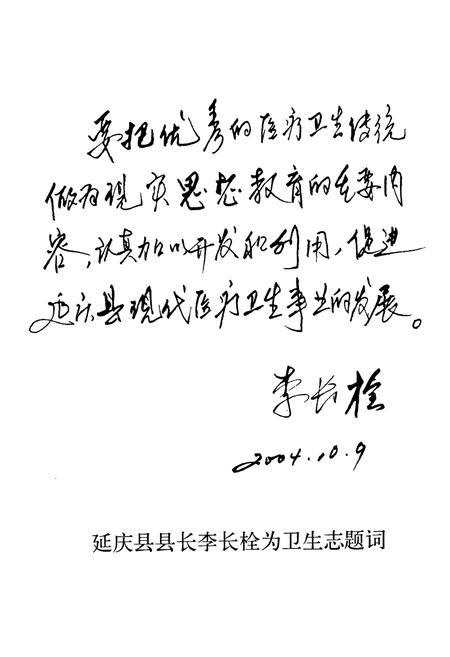 要把优秀的医疗卫生传统
做为现实思想教育的重要内
容，认真加以开发和利用，促进
延庆县现代医疗卫生事业的发展。
李长栓
2004.10.9
延庆县县长李长栓为卫生志题词